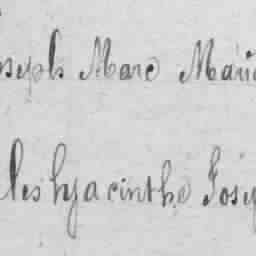 oseph Marc Marie
les hyacinthe Josep